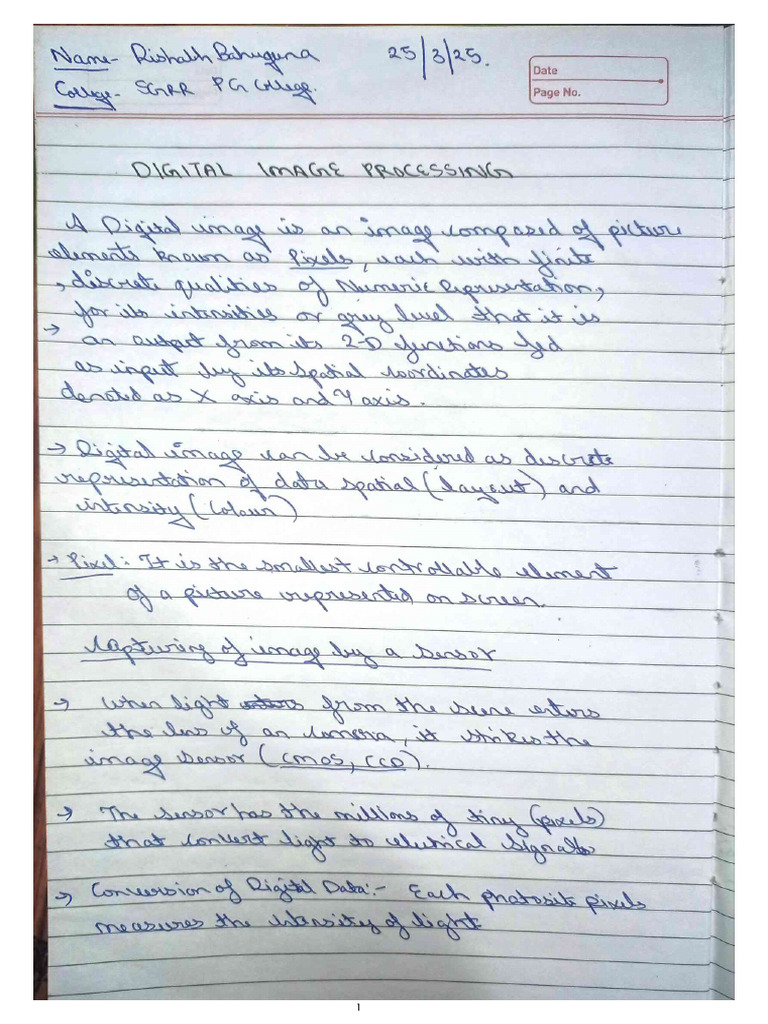 Name- Rishabh Bahuguna 25/3/25.
Date
College- SGRR PG College.
Page No.
DIGITAL IMAGE PROCESSING
A Digital image is an image composed of picture
elements known as Pixels, each with finite
, discrete qualities of Numeric Representation,
for its intensities or grey level that it is
→ an output from its 2-D functions fed
as input by its spatial coordinates
denoted as X axis and Y axis.
→ Digital image can be considered as discrete
representation of data spatial (layout) and
intensity (Colour)
→ Pixel: It is the smallest controllable element
of a picture represented on screen.
Capturing of image by a sensor
→ When light from the scene enters
the lens of an camera, it strikes the
image sensor (CMOS, CCD).
→ The sensor has the millions of tiny (pixels)
that convert light to electrical signals
→ Conversion of Digital Data:- Each photosite pixels
measures the intensity of light
1